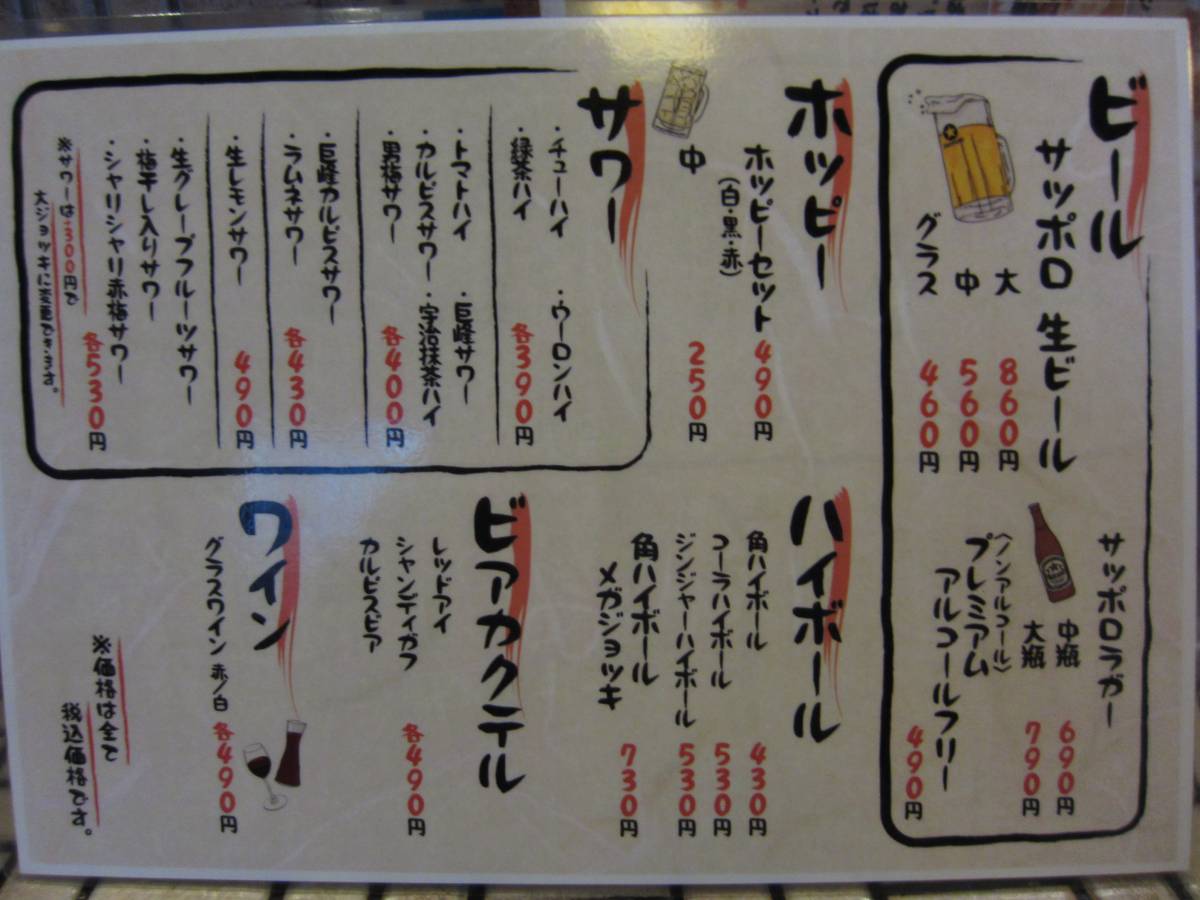 ビール
サッポロ 生ビール
大 860円
中 560円
グラス 460円
サッポロラガー
中瓶 690円
大瓶 790円
(ノンアルコール)
プレミアム
アルコールフリー
490円
ホッピー
ホッピーセット 490円
(白・黒・赤)
中 250円
サワー
・チューハイ ・ウーロンハイ
・緑茶ハイ 各390円
・トマトハイ ・巨峰サワー
・カルピスサワー ・宇治抹茶ハイ
・男梅サワー 各400円
・巨峰カルピスサワー
・ラムネサワー 各430円
・生レモンサワー 490円
・生グレープフルーツサワー
・梅干し入りサワー
・シャリシャリ赤梅サワー 各530円
※サワーは+300円で
大ジョッキに変更できます。
ハイボール
角ハイボール 430円
コーラハイボール 530円
ジンジャーハイボール 530円
角ハイボール
メガジョッキ 730円
ビアカクテル
レッドアイ
シャンディガフ 各490円
カルピスビア
ワイン
グラスワイン 赤/白 各490円
※価格は全て
税込価格です。